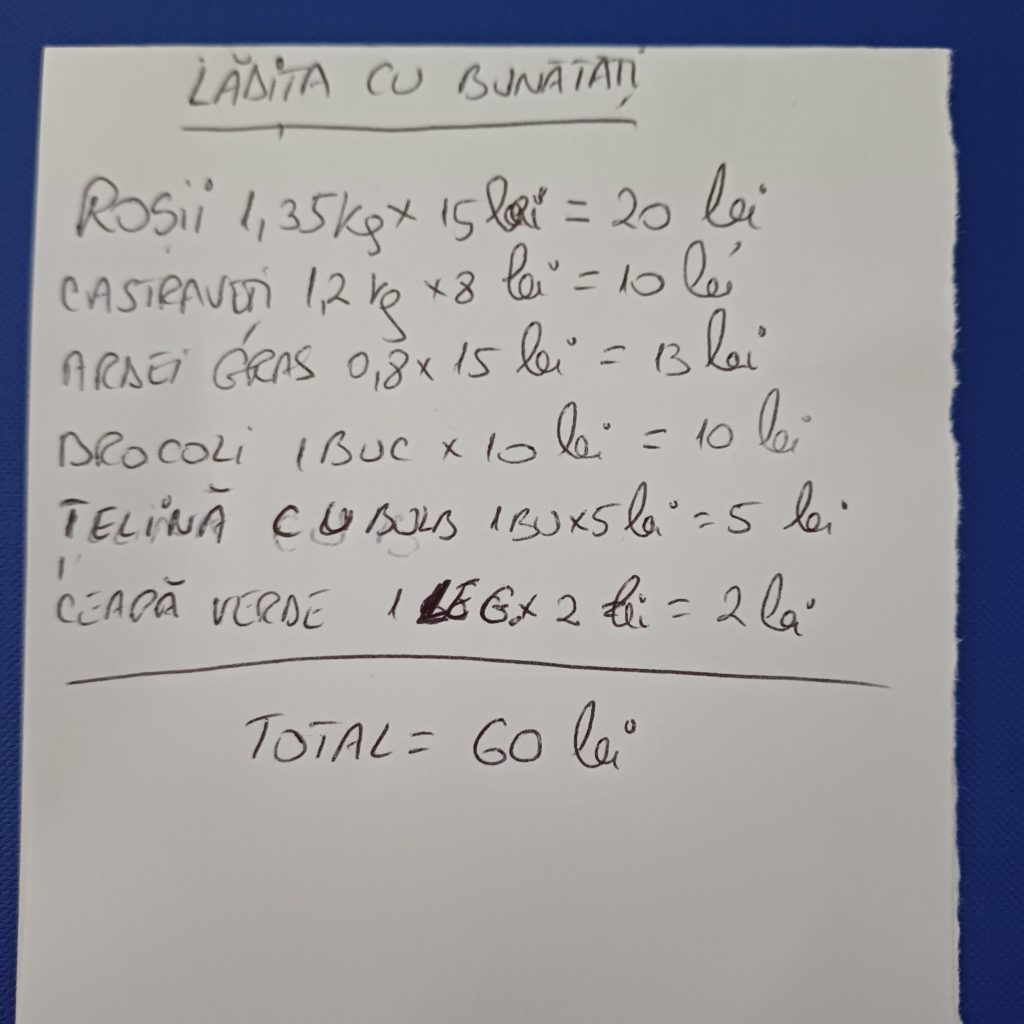 LĂDIȚA CU BUNĂTĂȚI
ROȘII 1,35kg x 15 lei = 20 lei
CASTRAVEȚI 1,2 kg x 8 lei = 10 lei
ARDEI GRAS 0,8 x 15 lei = 13 lei
BROCOLI 1 BUC x 10 lei = 10 lei
ȚELINĂ CU BULB 1 BU x 5 lei = 5 lei
CEAPĂ VERDE 1 LEG x 2 lei = 2 lei
TOTAL = 60 lei